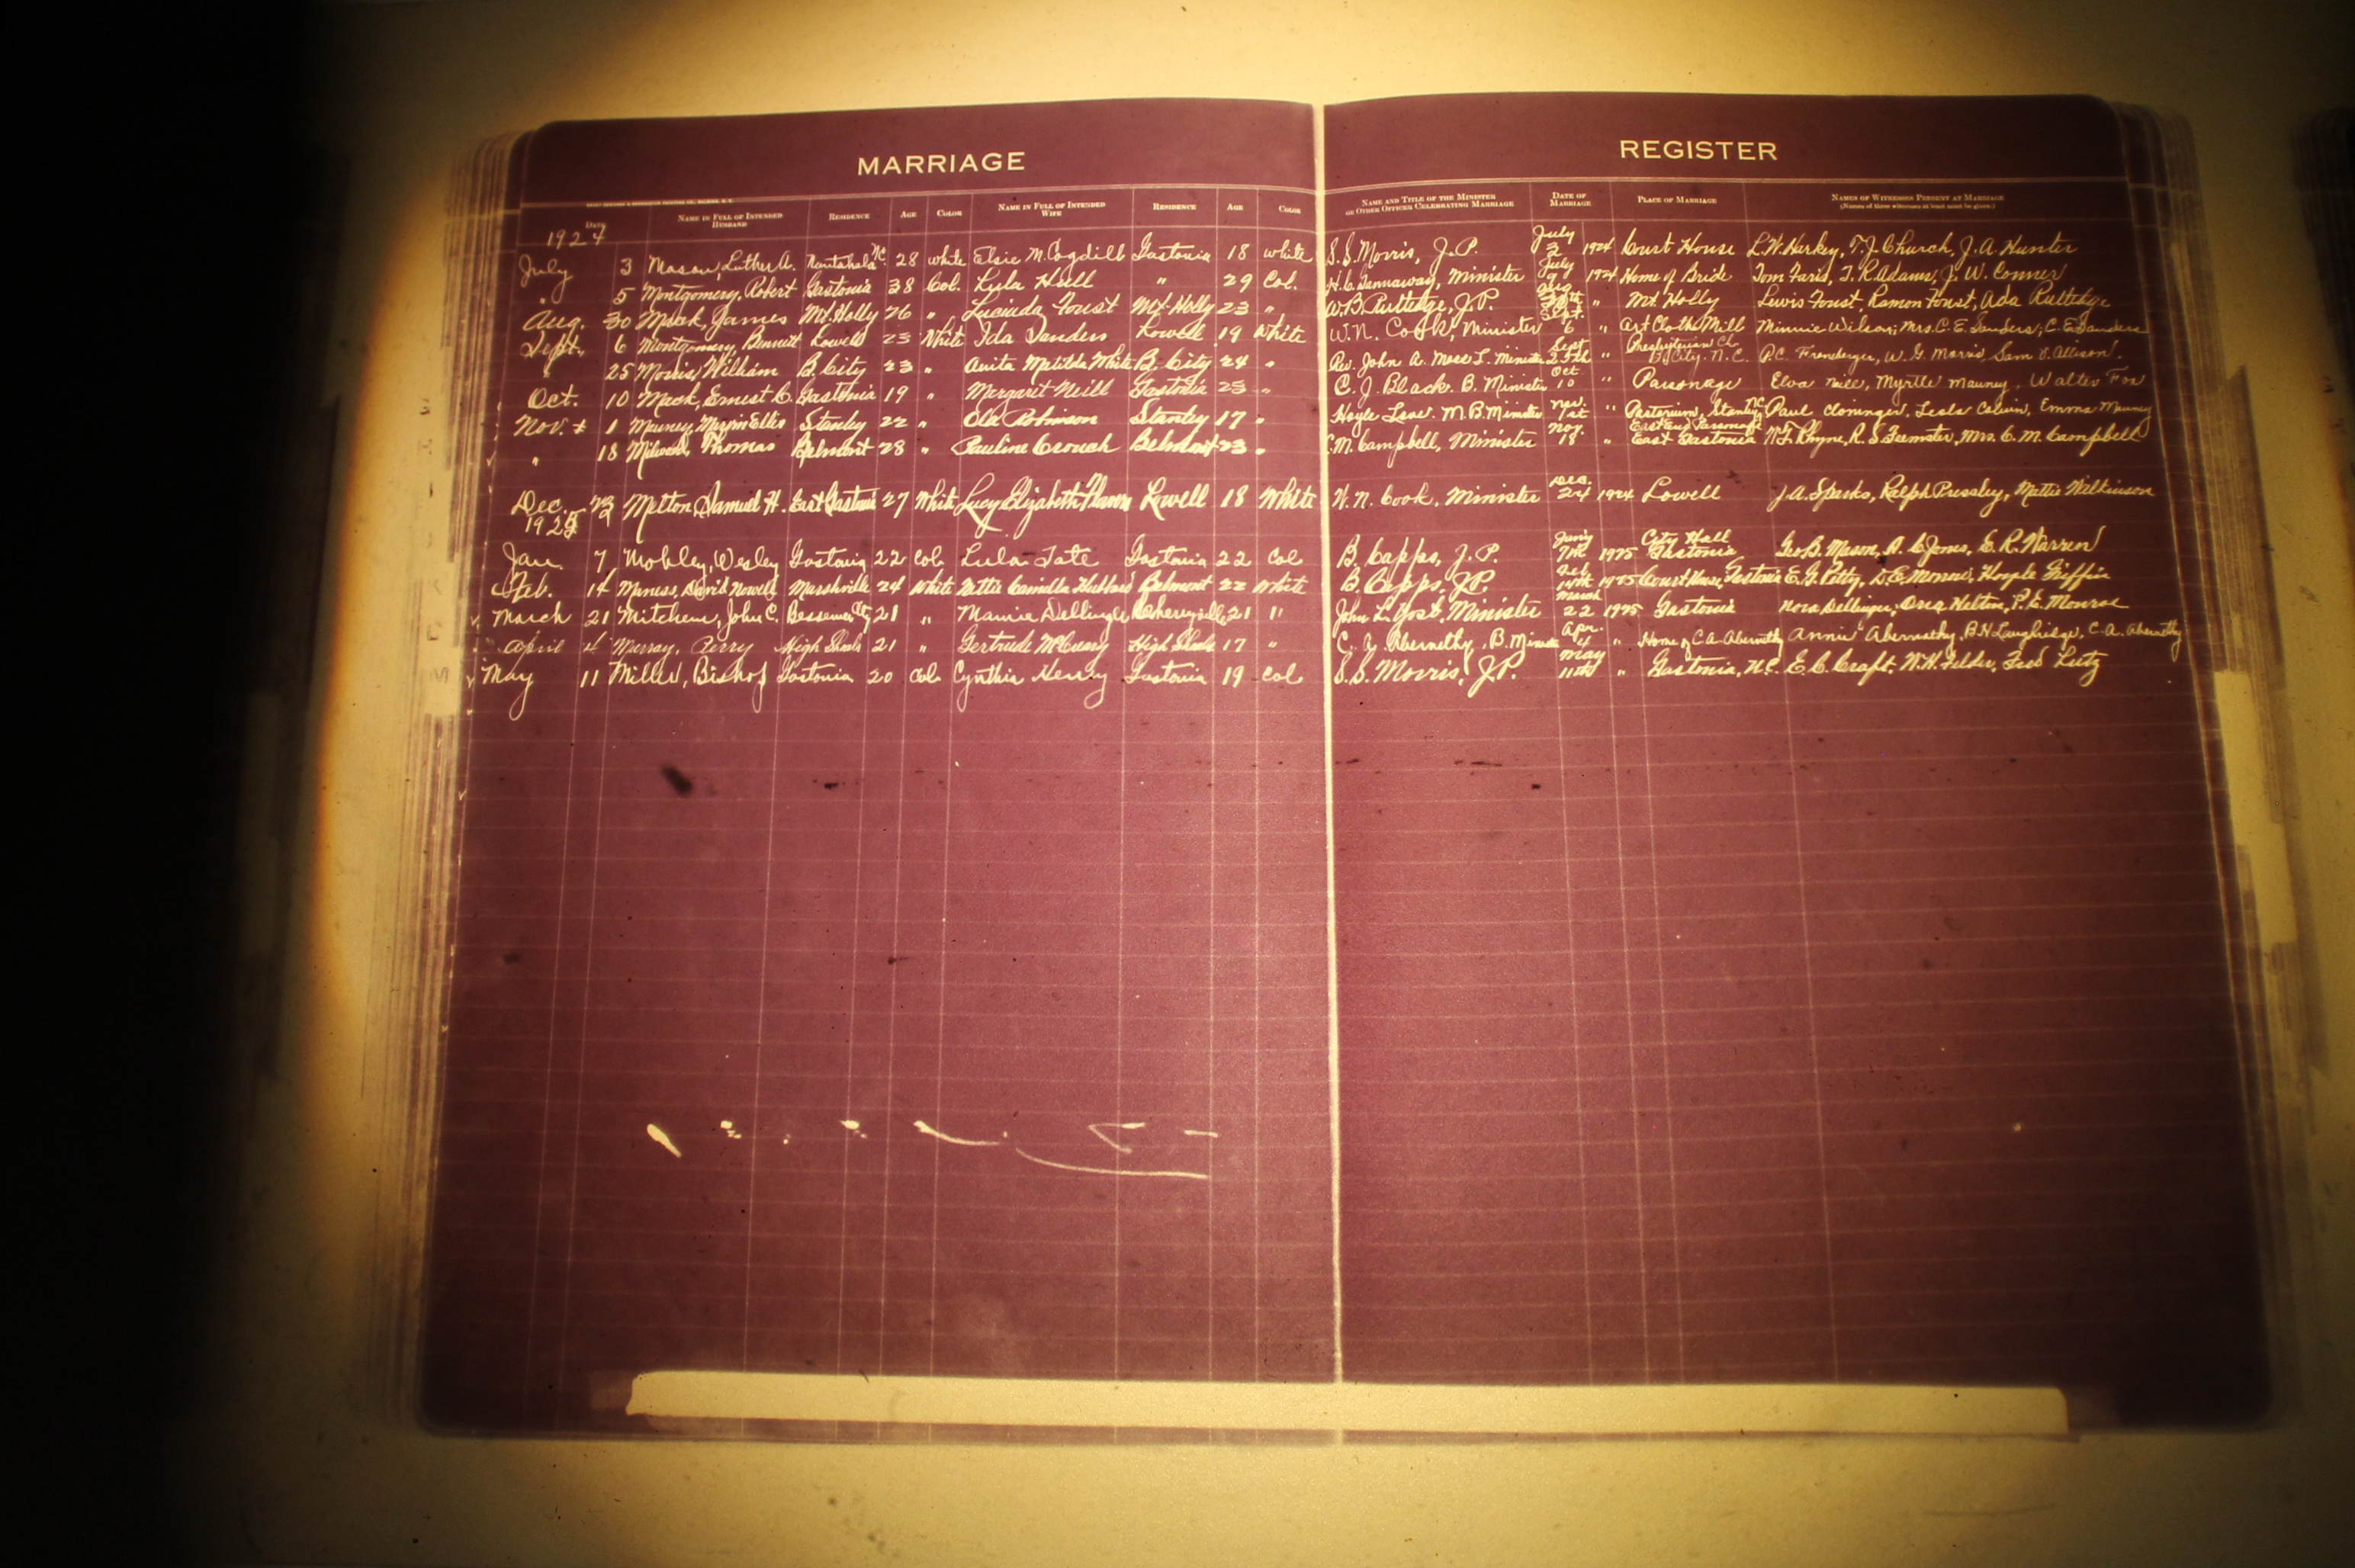 MARRIAGE REGISTER
Date Name in Full of Intended Husband Residence Age Color Name in Full of Intended Wife Residence Age Color Name and Title of the Minister or Other Officer Celebrating Marriage Date of Marriage Place of Marriage Names of Witnesses Present at Marriage (Names of three witnesses at least must be given.)
1924
July 3 Mason, Luther A. Nantahala NC 28 white Elsie M. Cogdill Gastonia 18 white S.S. Morris, J.P. July 3 1924 Court House L.W. Harkey, T.J. Church, J.A. Hunter
" 5 Montgomery, Robert Gastonia 38 Col. Lula Hill " 29 Col. H.C. Gannaway, Minister July 9 1924 Home of Bride Tom Faris, T.R. Adams, J.W. Conner
Aug. 30 Mack, James Mt. Holly 26 " Lucinda Foust Mt. Holly 23 " W.B. Rutledge, J.P. Aug " Mt Holly Lewis Foust, Ramon Foust, Ada Rutledge
Sept. 6 Montgomery, Bennett Lowell 23 White Ida Sanders Lowell 19 White W.N. Cook, Minister Sept. 6 " Art Cloth Mill Minnie Wilson; Mrs. C.E. Sanders; C.E. Sanders
25 Morris, William B. City 23 " Anita Matilda White B. City 24 " Rev. John A. L. Minister Sept 25th " Presbyterian Ch. B. City. N.C. P.C. Froneberger, W.G. Morris, Sam J. Allison.
Oct. 10 Mack, Ernest C. Gastonia 19 " Margaret Neill Gastonia 23 " C.J. Black. B. Minister Oct 10 " Parsonage Elva Neill, Myrtle Mauney, Walter Fox
Nov. 1 Mauney, Marvin Ellis Stanley 22 " Ola Robinson Stanley 17 " Hoyle Love. M.B. Minister Nov. 1st " Stanley NC Paul Cloninger, Lesla Colvin, Emma Mauney
" 18 Thomas Belmont 28 " Pauline Crouch Belmont 23 " C.M. Campbell, Minister Nov. 18 " East End Parsonage East Gastonia W.F. Rhyne, R.S. Feemster, Mrs. C.M. Campbell
Dec. 23 Melton, Samuel H. East Gastonia 27 White Lucy Elizabeth Lowell 18 White W.N. Cook, Minister Dec. 24 1924 Lowell J.A. Sparks, Ralph Pressley, Mattie Wilkinson
1925
Jan. 7 Mobley, Wesley Gastonia 22 col. Lula Tate Gastonia 22 Col B. Capps, J.P. Jan'y 7th 1925 City Hall Gastonia Geo B. Mason, A.C. Jones, E.R. Warren
Feb. 14 Maness, David Nowell Marshville 24 White Mittie Camilla Hubbard Belmont 22 White B. Capps, J.P. Feb 14th 1925 Court House, Gastonia E.G. Petty, D.E. Monroe, Hoyle Griffin
March 21 Mitchem, John C. Bessemer Cty 21 " Mamie Dellinger Cherryville 21 " John L. Yost, Minister March 22 1925 Gastonia Nora Dellinger, Ora Helton, P.E. Monroe
April 4 Murray, Perry High Shoals 21 " Gertrude McCrary High Shoals 17 " C.A. Abernethy, B. Minister Apr. 4 " Home of C.A. Abernethy Annie Abernethy, B.H. Laughridge, C.A. Abernethy
May 11 Miller, Bishop Gastonia 20 col. Cynthia Henry Gastonia 19 Col. S.S. Morris, J.P. May 11th " Gastonia, N.C. E.C. Craft, W.H. Felder, Fred Lutz